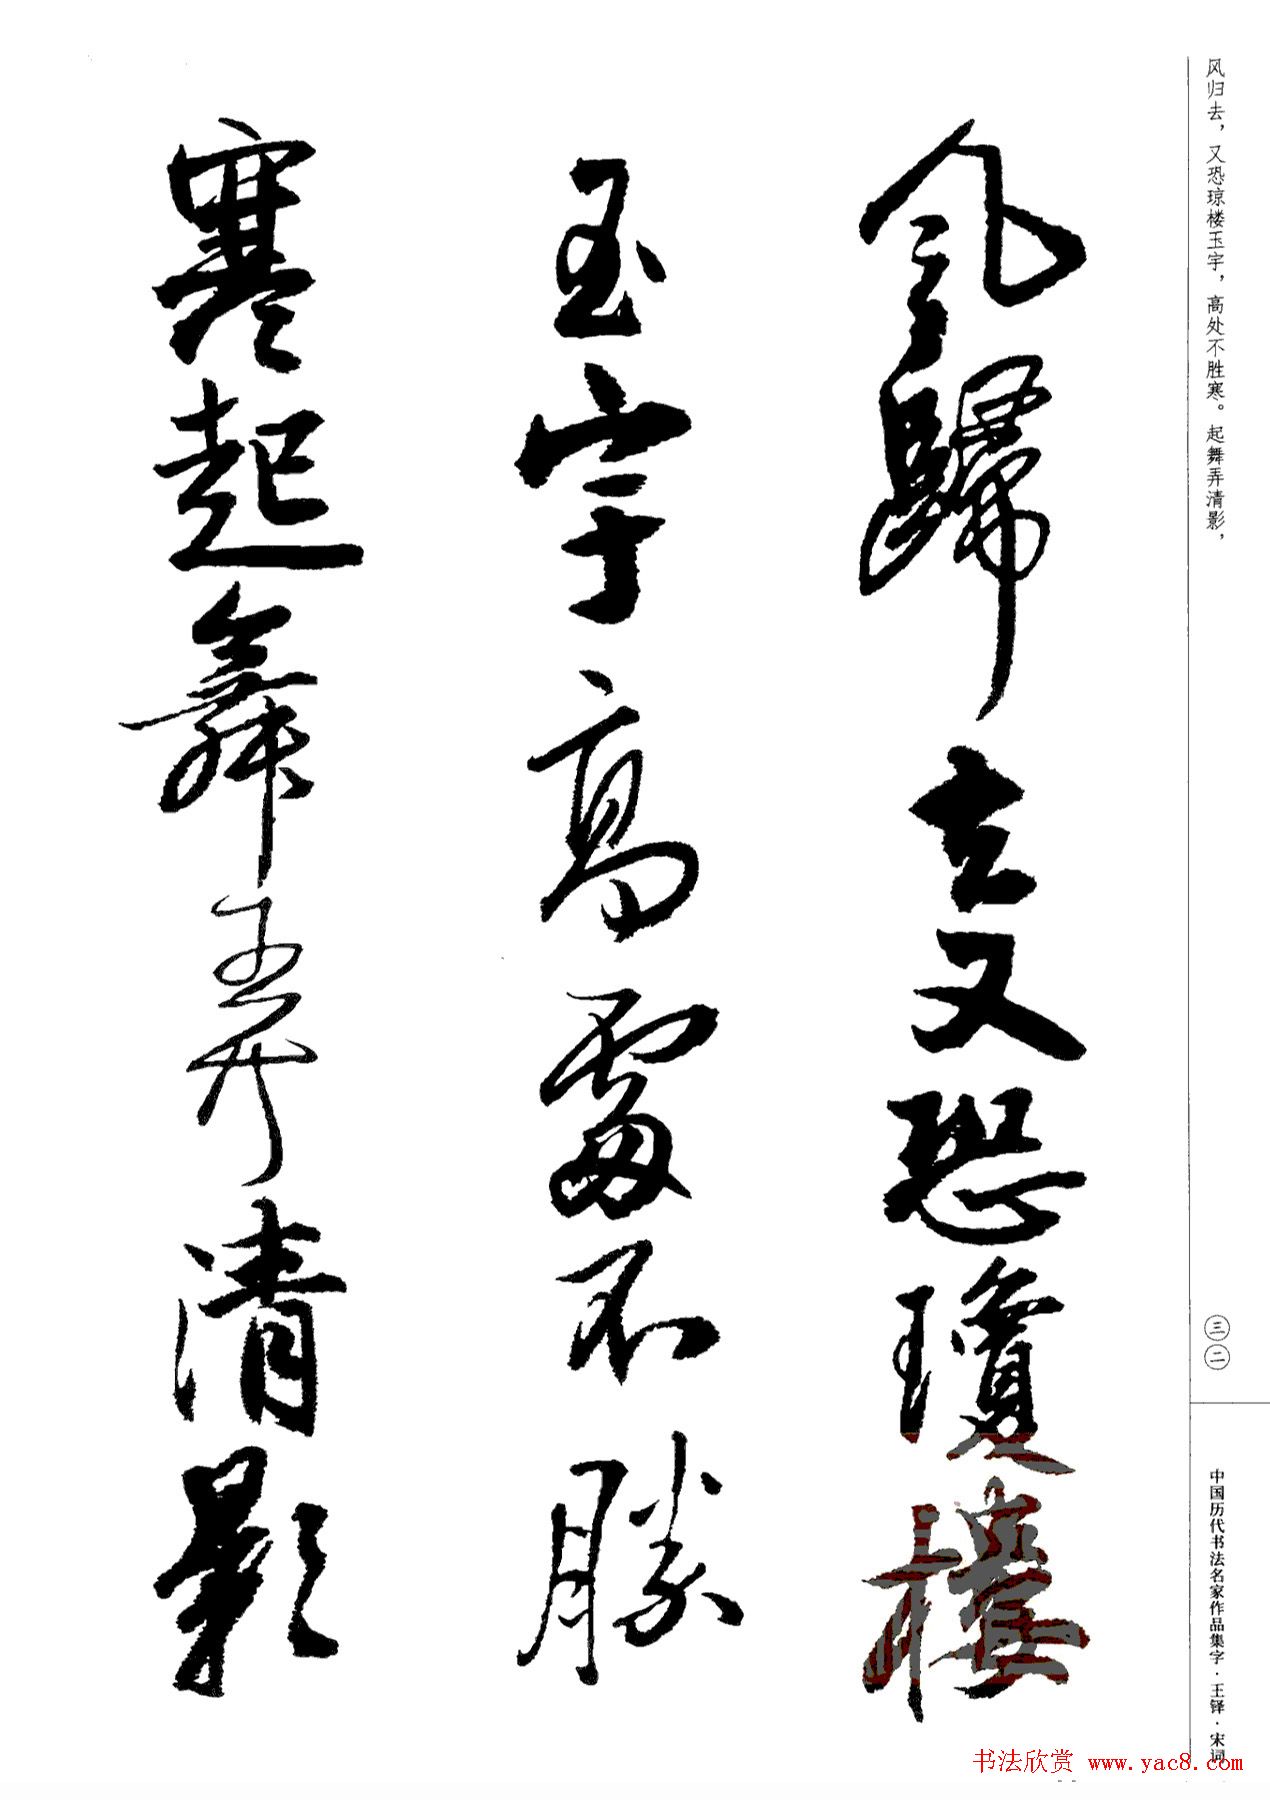 风归去，又恐琼楼玉宇，高处不胜寒。起舞弄清影，
風歸去又恐瓊樓
玉宇高處不勝
寒起舞弄清影
三二
中国历代书法名家作品集字·王铎·宋词
书法欣赏 www.yac8.com